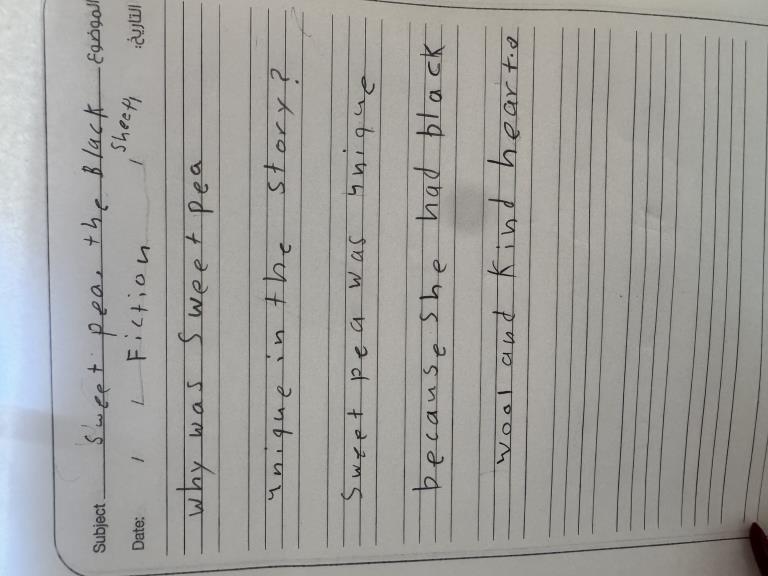 Subject Sweet pea, the Black الموضوع
Sheep
Date: / / Fiction / التاريخ:
Why was Sweet pea
unique in the story?
Sweet pea was unique
because she had black
wool and kind heart.